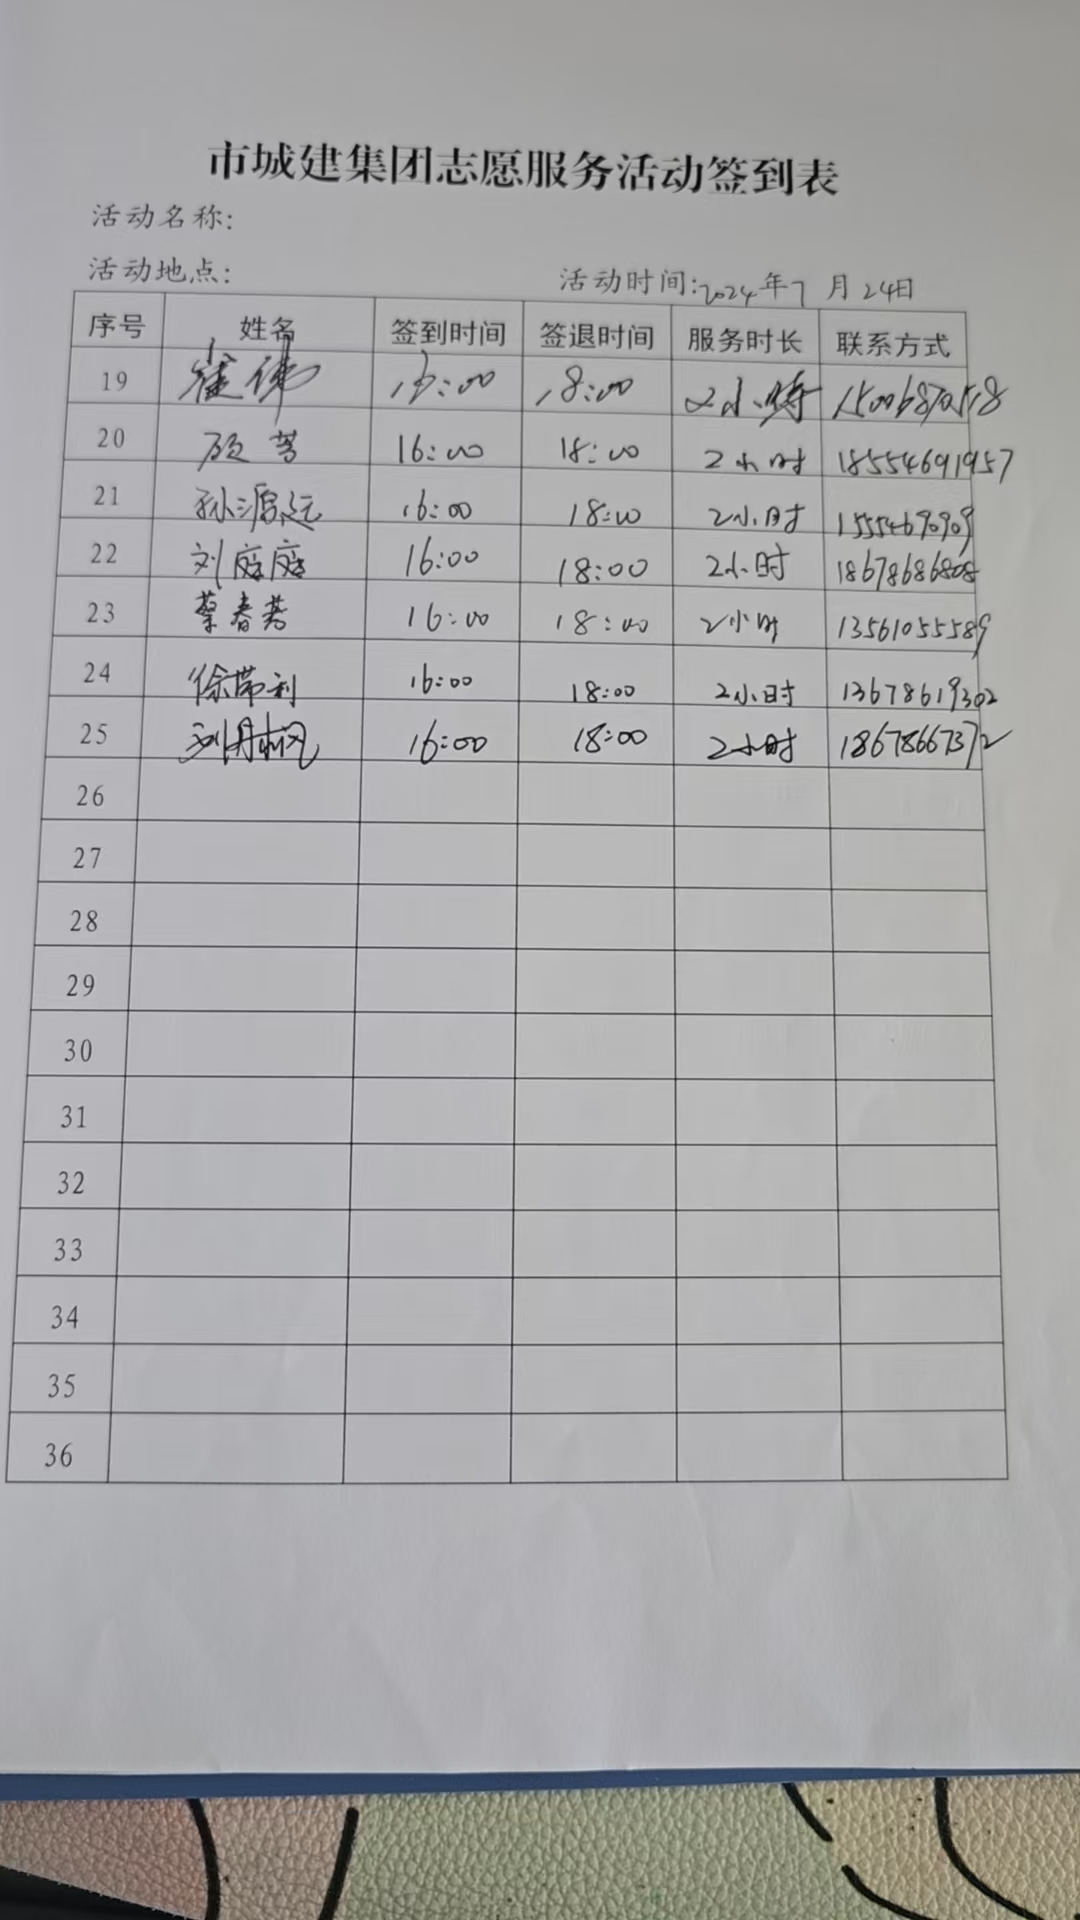 市城建集团志愿服务活动签到表
活动名称:
活动地点: 活动时间:2024年7月24日
序号 姓名 签到时间 签退时间 服务时长 联系方式
19 崔伟 16:00 18:00 2小时 15006870518
20 顾芳 16:00 18:00 2小时 18554691957
21 孙源远 16:00 18:00 2小时 15554690909
22 刘庭庭 16:00 18:00 2小时 18678686808
23 蔡春芳 16:00 18:00 2小时 13561055589
24 徐常利 16:00 18:00 2小时 13678619302
25 16:00 18:00 2小时 18678667372
26
27
28
29
30
31
32
33
34
35
36